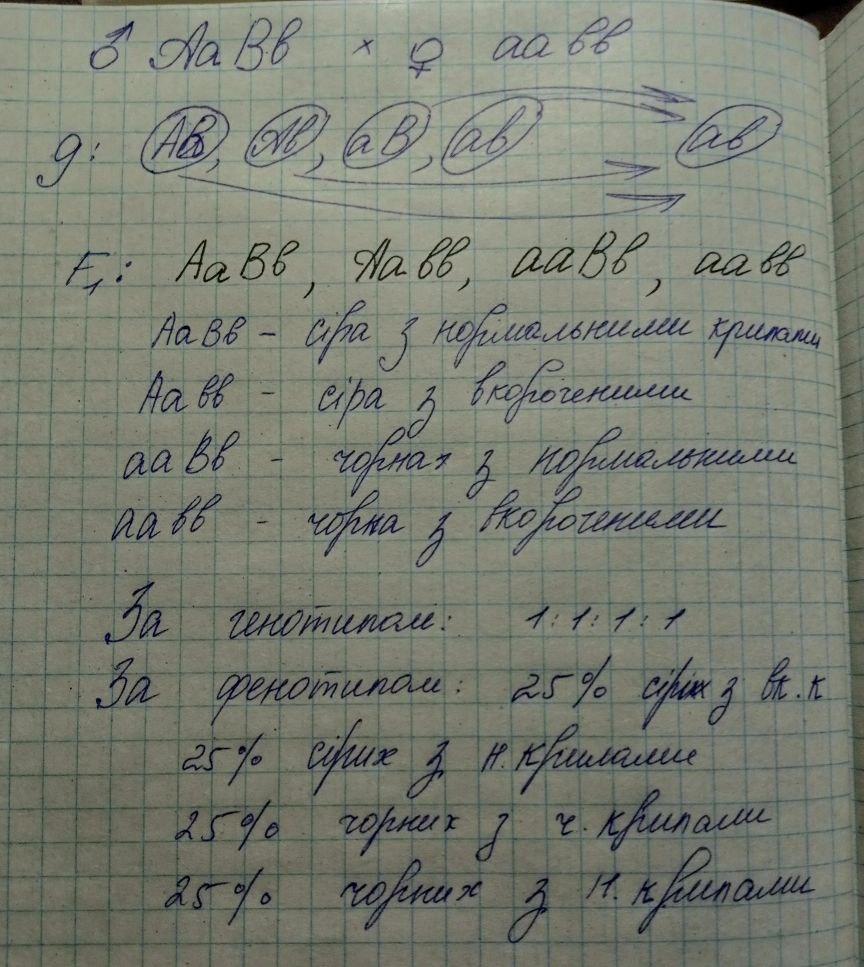 ♂ АаВв × ♀ аавв
g: АВ, Ав, аВ, ав ав
F₁: АаВв, Аавв, ааВв, аавв
АаВв – сіра з нормальними крилами
Аавв – сіра з вкороченими
ааВв – чорна з нормальними
аавв – чорна з вкороченими
За генотипом: 1:1:1:1
За фенотипом: 25% сірих з вк. к
25% сірих з н. крилами
25% чорних з ч. крилами
25% чорних з н. крилами